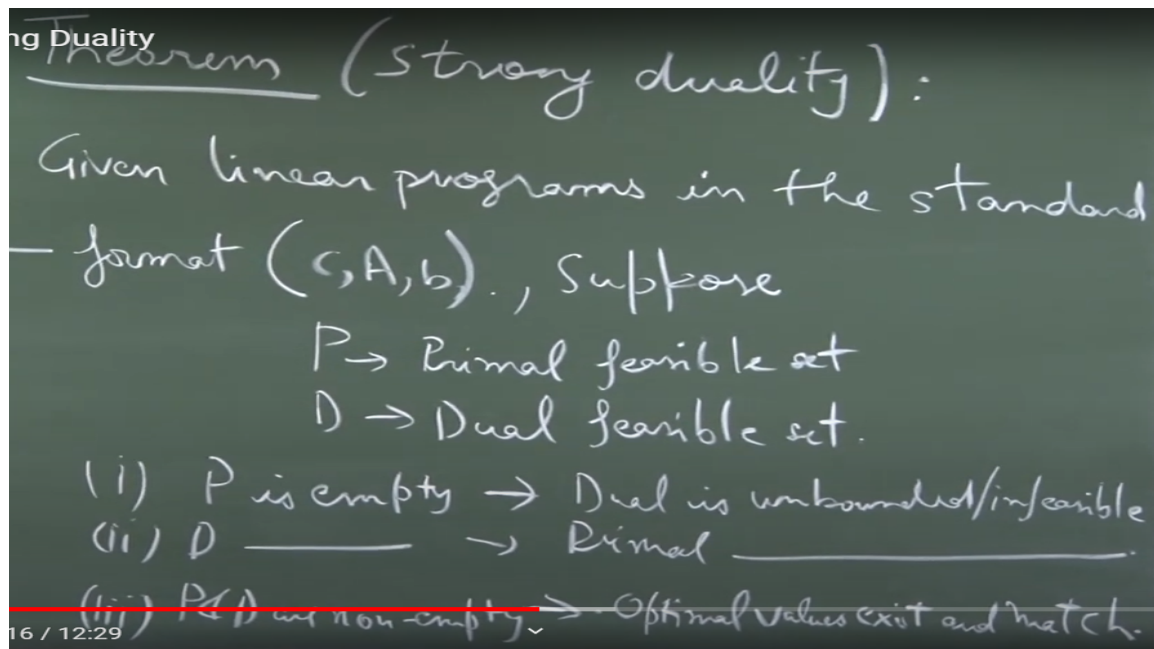 ng Duality
Theorem (strong duality):
Given linear programs in the standard
– format (c, A, b)., Suppose
P → Primal feasible set
D → Dual feasible set.
(i) P is empty → Dual is unbounded/infeasible
(ii) D ———— → Primal ————————.
(iii) P & D are non-empty → Optimal values exist and match.
16 / 12:29